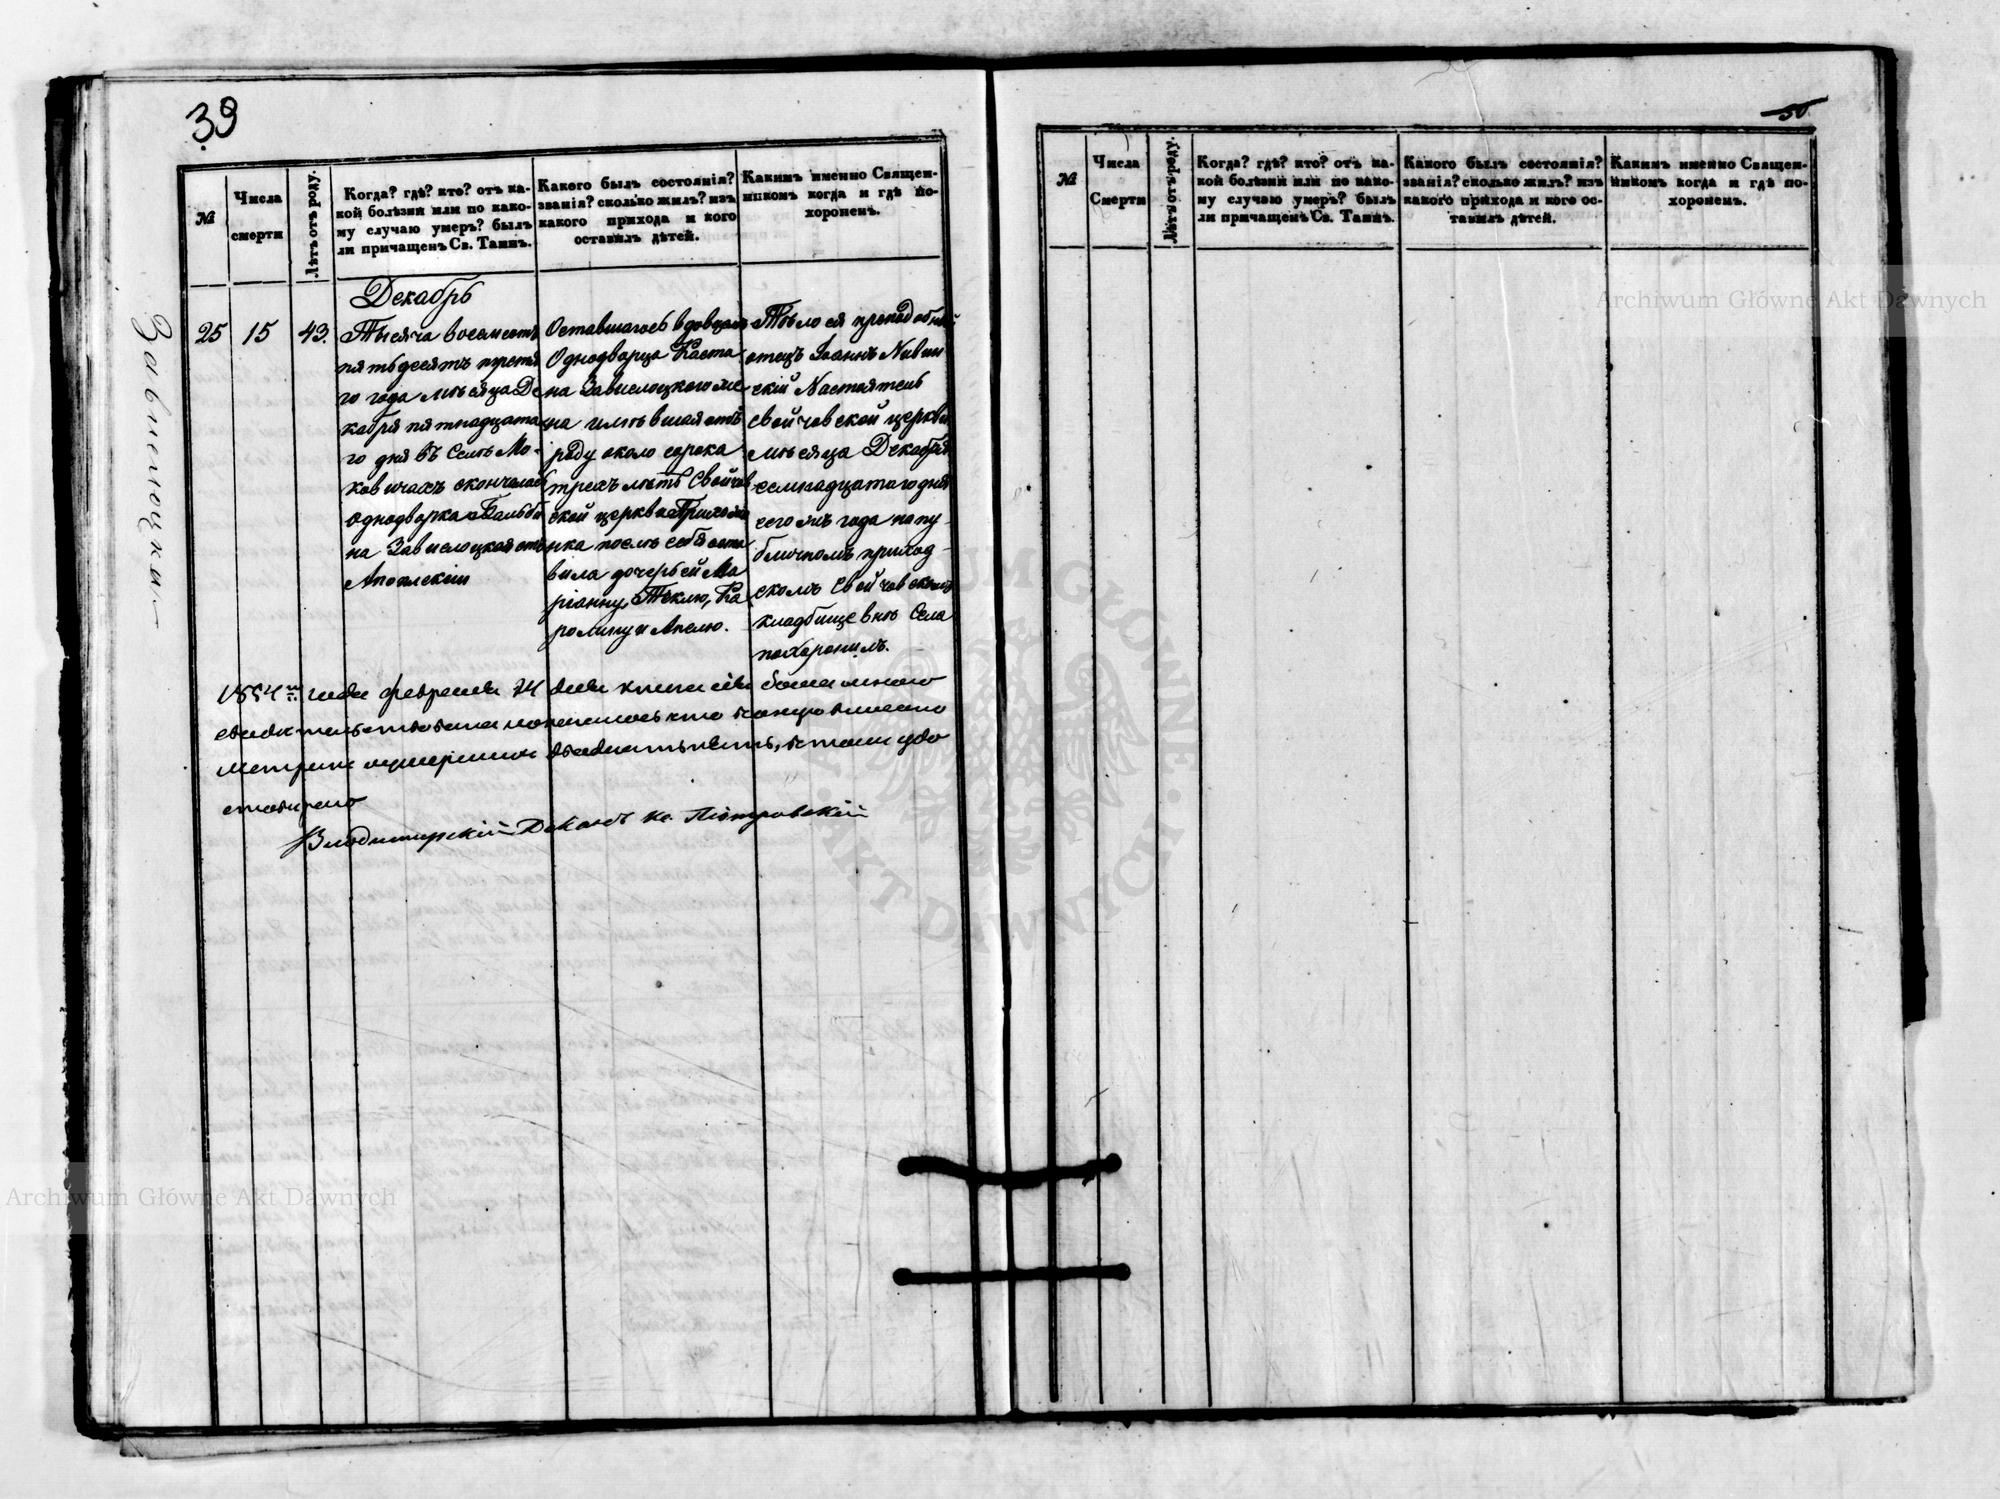 39
№
Числа
смерти
Лѣтъ отъ роду.
Когда? гдѣ? кто? отъ ка-
кой болѣзни или по како-
му случаю умеръ? былъ
ли причащенъ Св. Таинъ.
Какого былъ состоянія?
званія? сколько жилъ? изъ
какого прихода и кого
оставилъ дѣтей.
Какимъ именно Священ-
никомъ когда и гдѣ по-
хороненъ.
Декабрь
25
15
43.
Тысяча восемьсотъ
пятьдесятъ третья
го года мѣсяца Де
кабря пятнадцата
го дня въ Селѣ Мо-
ковичахъ скончалась
однодворка
на Завислоцкая отъ
Апоплексіи
Оставшагось вдовцомъ
Однодворца Каета
на Завислоцкого же
на имѣвшая отъ
роду около сорока
трехъ лѣтъ Свойчов
ской церкви Прихожа
нка послѣ себя оста
вила дочерьей Ма
ріанну, Теклю, Ка
ролину и Анелю.
Тѣло ея преподобный
отецъ Іоаннъ
скій Настоятель
Свойчовской церкви
мѣсяца Декабря
семнадцатого дня
сего жъ года на пу-
бличномъ приход-
скомъ Свойчовскомъ
кладбище внѣ Села
похоронилъ.
Завислоцкая
1854 года февраля 24 дня книга сія была мною
свидетельствована
метрикъ умершихъ двадцать пять, въ томъ удо
стовѣряю
Владимирскій Деканъ кс. Піотровскій
50
№
Числа
Смерти
Лѣтъ отъ роду.
Когда? гдѣ? кто? отъ ка-
кой болѣзни или по како-
му случаю умеръ? былъ
ли причащенъ Св. Таинъ.
Какого былъ состоянія?
званія? сколько жилъ? изъ
какого прихода и кого ос-
тавилъ дѣтей.
Какимъ именно Священ-
никомъ когда и гдѣ по-
хороненъ.
Archiwum Główne Akt Dawnych
Archiwum Główne Akt Dawnych